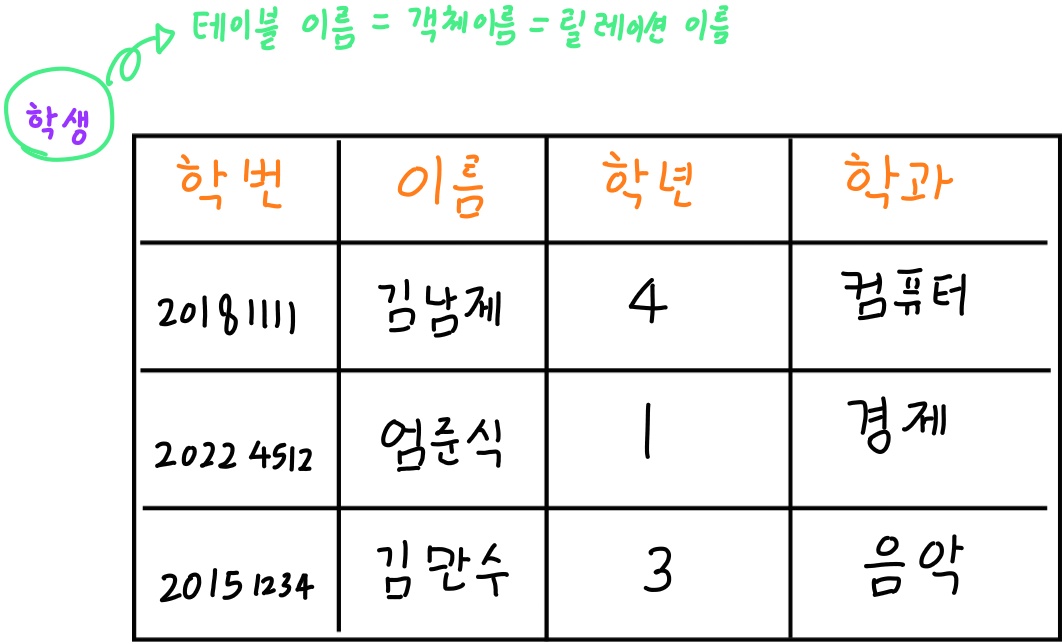 테이블 이름 = 객체이름 = 릴레이션 이름
학생
학번 이름 학년 학과
20181111 김남제 4 컴퓨터
20224512 엄준식 1 경제
20151234 김만수 3 음악